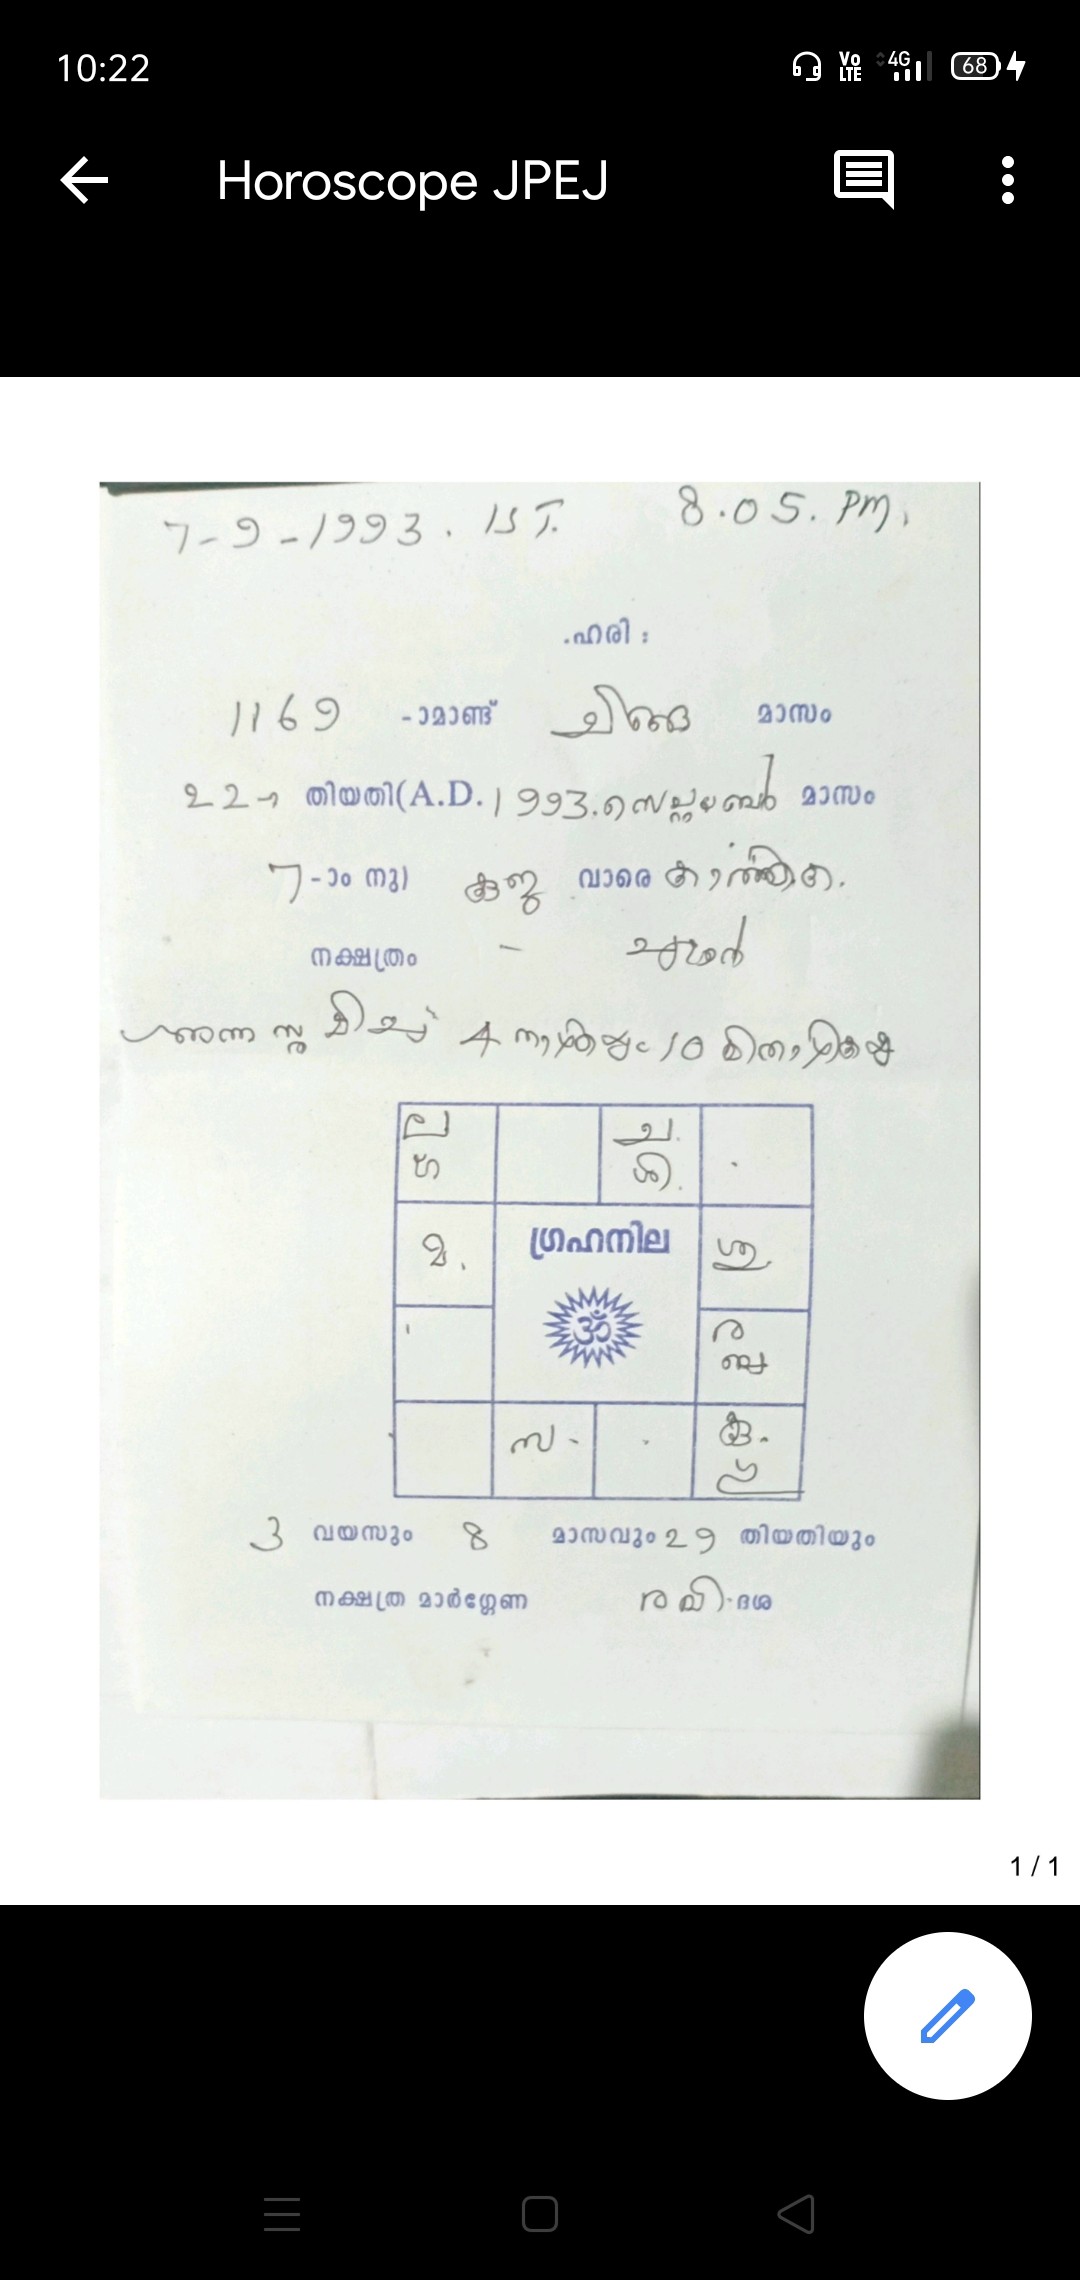 10:22 Vo LTE 4G 68
Horoscope JPEJ
7-9-1993. IST. 8.05. PM.
.ഹരി :
1169 -ാമാണ്ട് ചിങ്ങ മാസം
22-ാ തിയതി(A.D.1993.സെപ്റ്റംബർ മാസം
7-ാം നു) കുജ വാരെ കാർത്തിക.
നക്ഷത്രം -
4 10
ല
ച.
ഗു
ശി.
മ.
ഗ്രഹനില
ശു.
ॐ
ര
സ.
കു.
3 വയസും 8 മാസവും 29 തിയതിയും
നക്ഷത്ര മാർഗ്ഗേണ രവി-ദശ
1 / 1